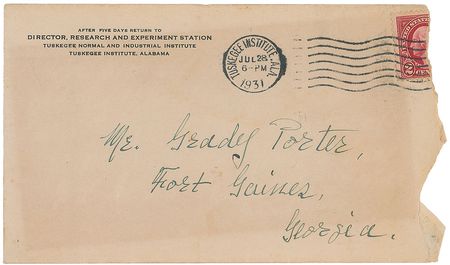 AFTER FIVE DAYS RETURN TO
DIRECTOR, RESEARCH AND EXPERIMENT STATION
TUSKEGEE NORMAL AND INDUSTRIAL INSTITUTE
TUSKEGEE INSTITUTE, ALABAMA
TUSKEGEE INSTITUTE, ALA.
JUL 28
6-PM
1931
Mr. Gradey Porter,
Fort Gaines,
Georgia.